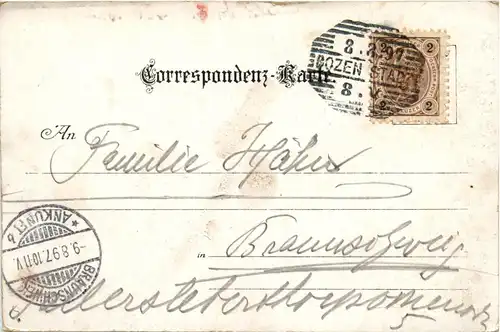 8.8.97
BOZEN STADT
8.
2 2
2 2
Correspondenz-Karte.
An
Familie Hahn
in Braunschweig
BRAUNSCHWEIG
-9.8.97.10-11V.
* ANKUNFT b
5